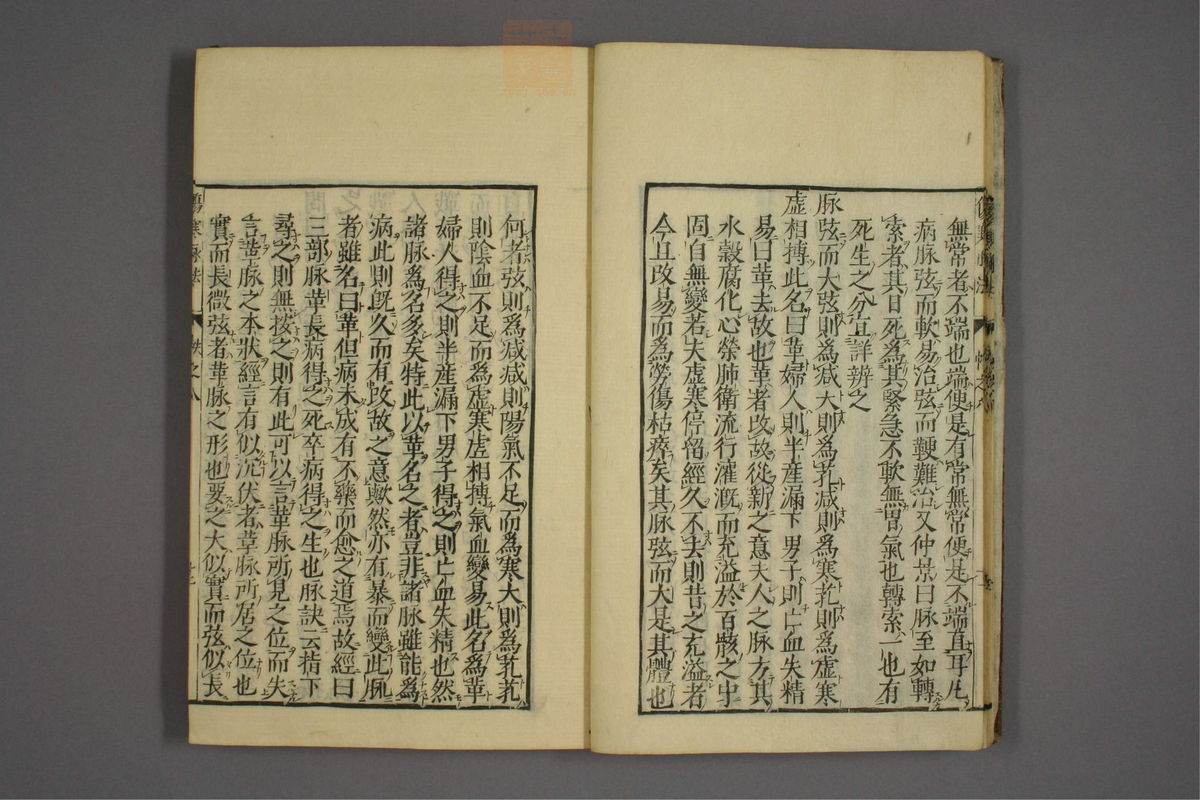 無常者不端也端便是有常無常便是不端直耳凡
病脉弦而軟易治弦而鞕難治又仲景曰脉至如轉
索者其日死爲其緊急不軟無胃氣也轉索一也有
死生之分宜詳辨之
脉弦而大弦則爲减大則爲芤减則爲寒芤則爲虛寒
虛相搏此名曰革婦人則半産漏下男子則亡血失精
易曰革去故也革者改故從新之意夫人之脉方其
水穀腐化心榮肺衛流行灌漑而充溢於百骸之中
固自無變若夫虛寒停留經久不去則昔之充溢者
今且改易而爲勞傷枯瘠矣其脉弦而大是其體也
何者弦則爲减减則陽氣不足而爲寒大則爲芤芤
則陰血不足而爲虛寒虛相搏氣血變易此名爲革
婦人得之則半産漏下男子得之則亡血失精也然
諸脉爲名多矣特此以革名之者豈非諸脉雖能爲
病此則旣久而有改故之意歟然亦有暴而變此脈
者雖名曰革但病未成有不藥而愈之道焉故經曰
三部脉革長病得之死卒病得之生也脉訣云指下
尋之則無按之則有此可以言革脉所見之位而失
言革脉之本狀經言有似沉伏者革脉所居之位也
實而長微弦者革脉之形也要之大似實而弦似長
傷寒脉法